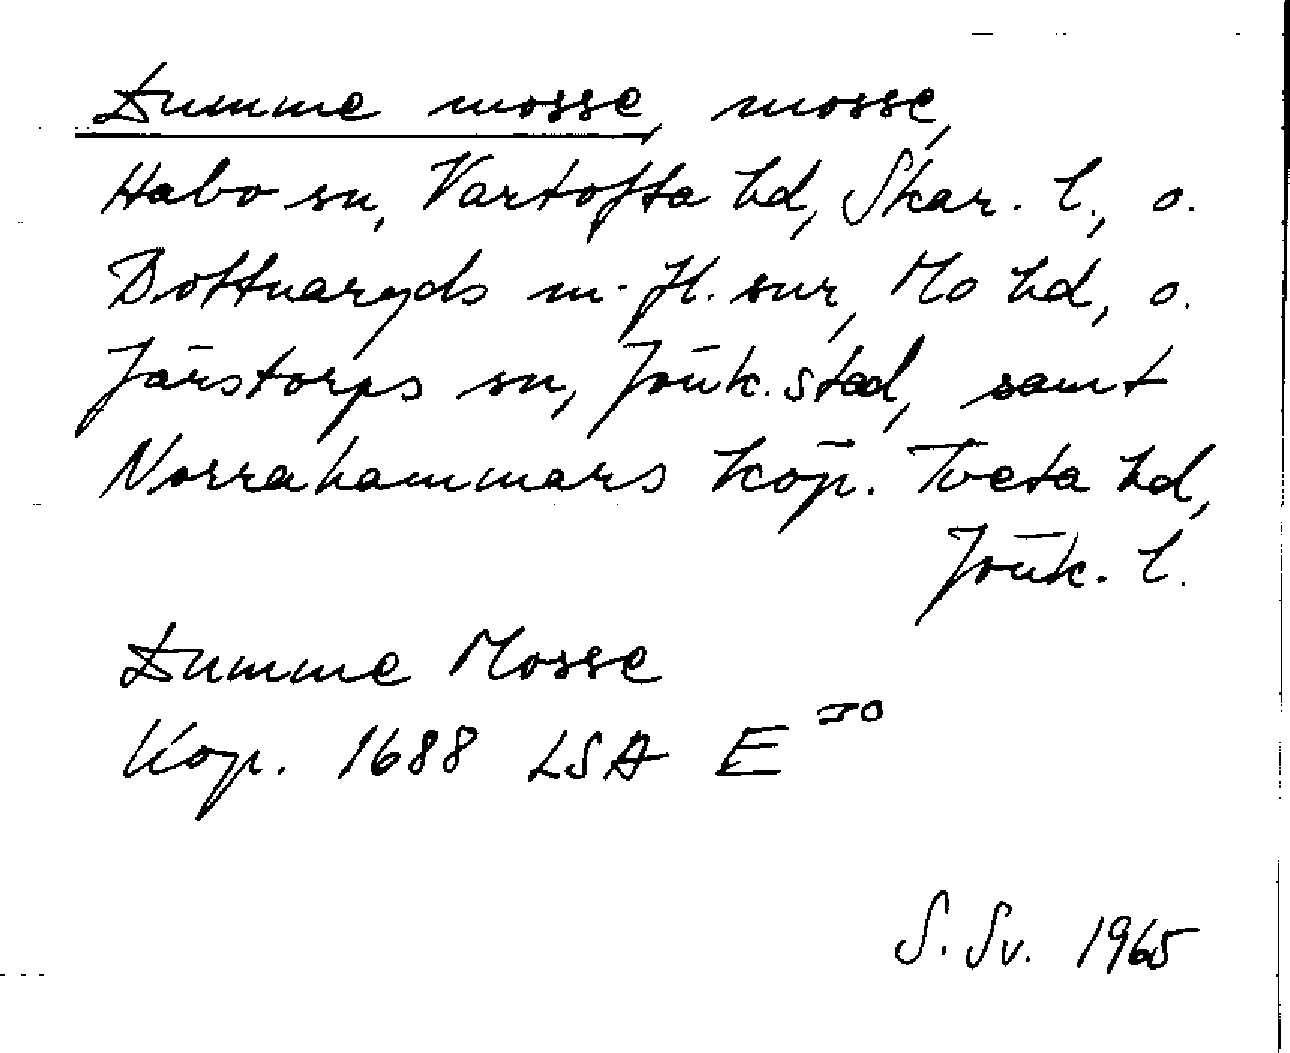 Dumme mosse, mosse,
Habo sn, Vartofta hd, Skar. l., o.
Bottnaryds m. fl. snr, Mo hd, o.
Järstorps sn, Jönk. stad, samt
Norrahammars köp. Tveta hd,
Jönk. l.
Dumme Mosse
Kop. 1688 LSA E
S. Sv. 1965